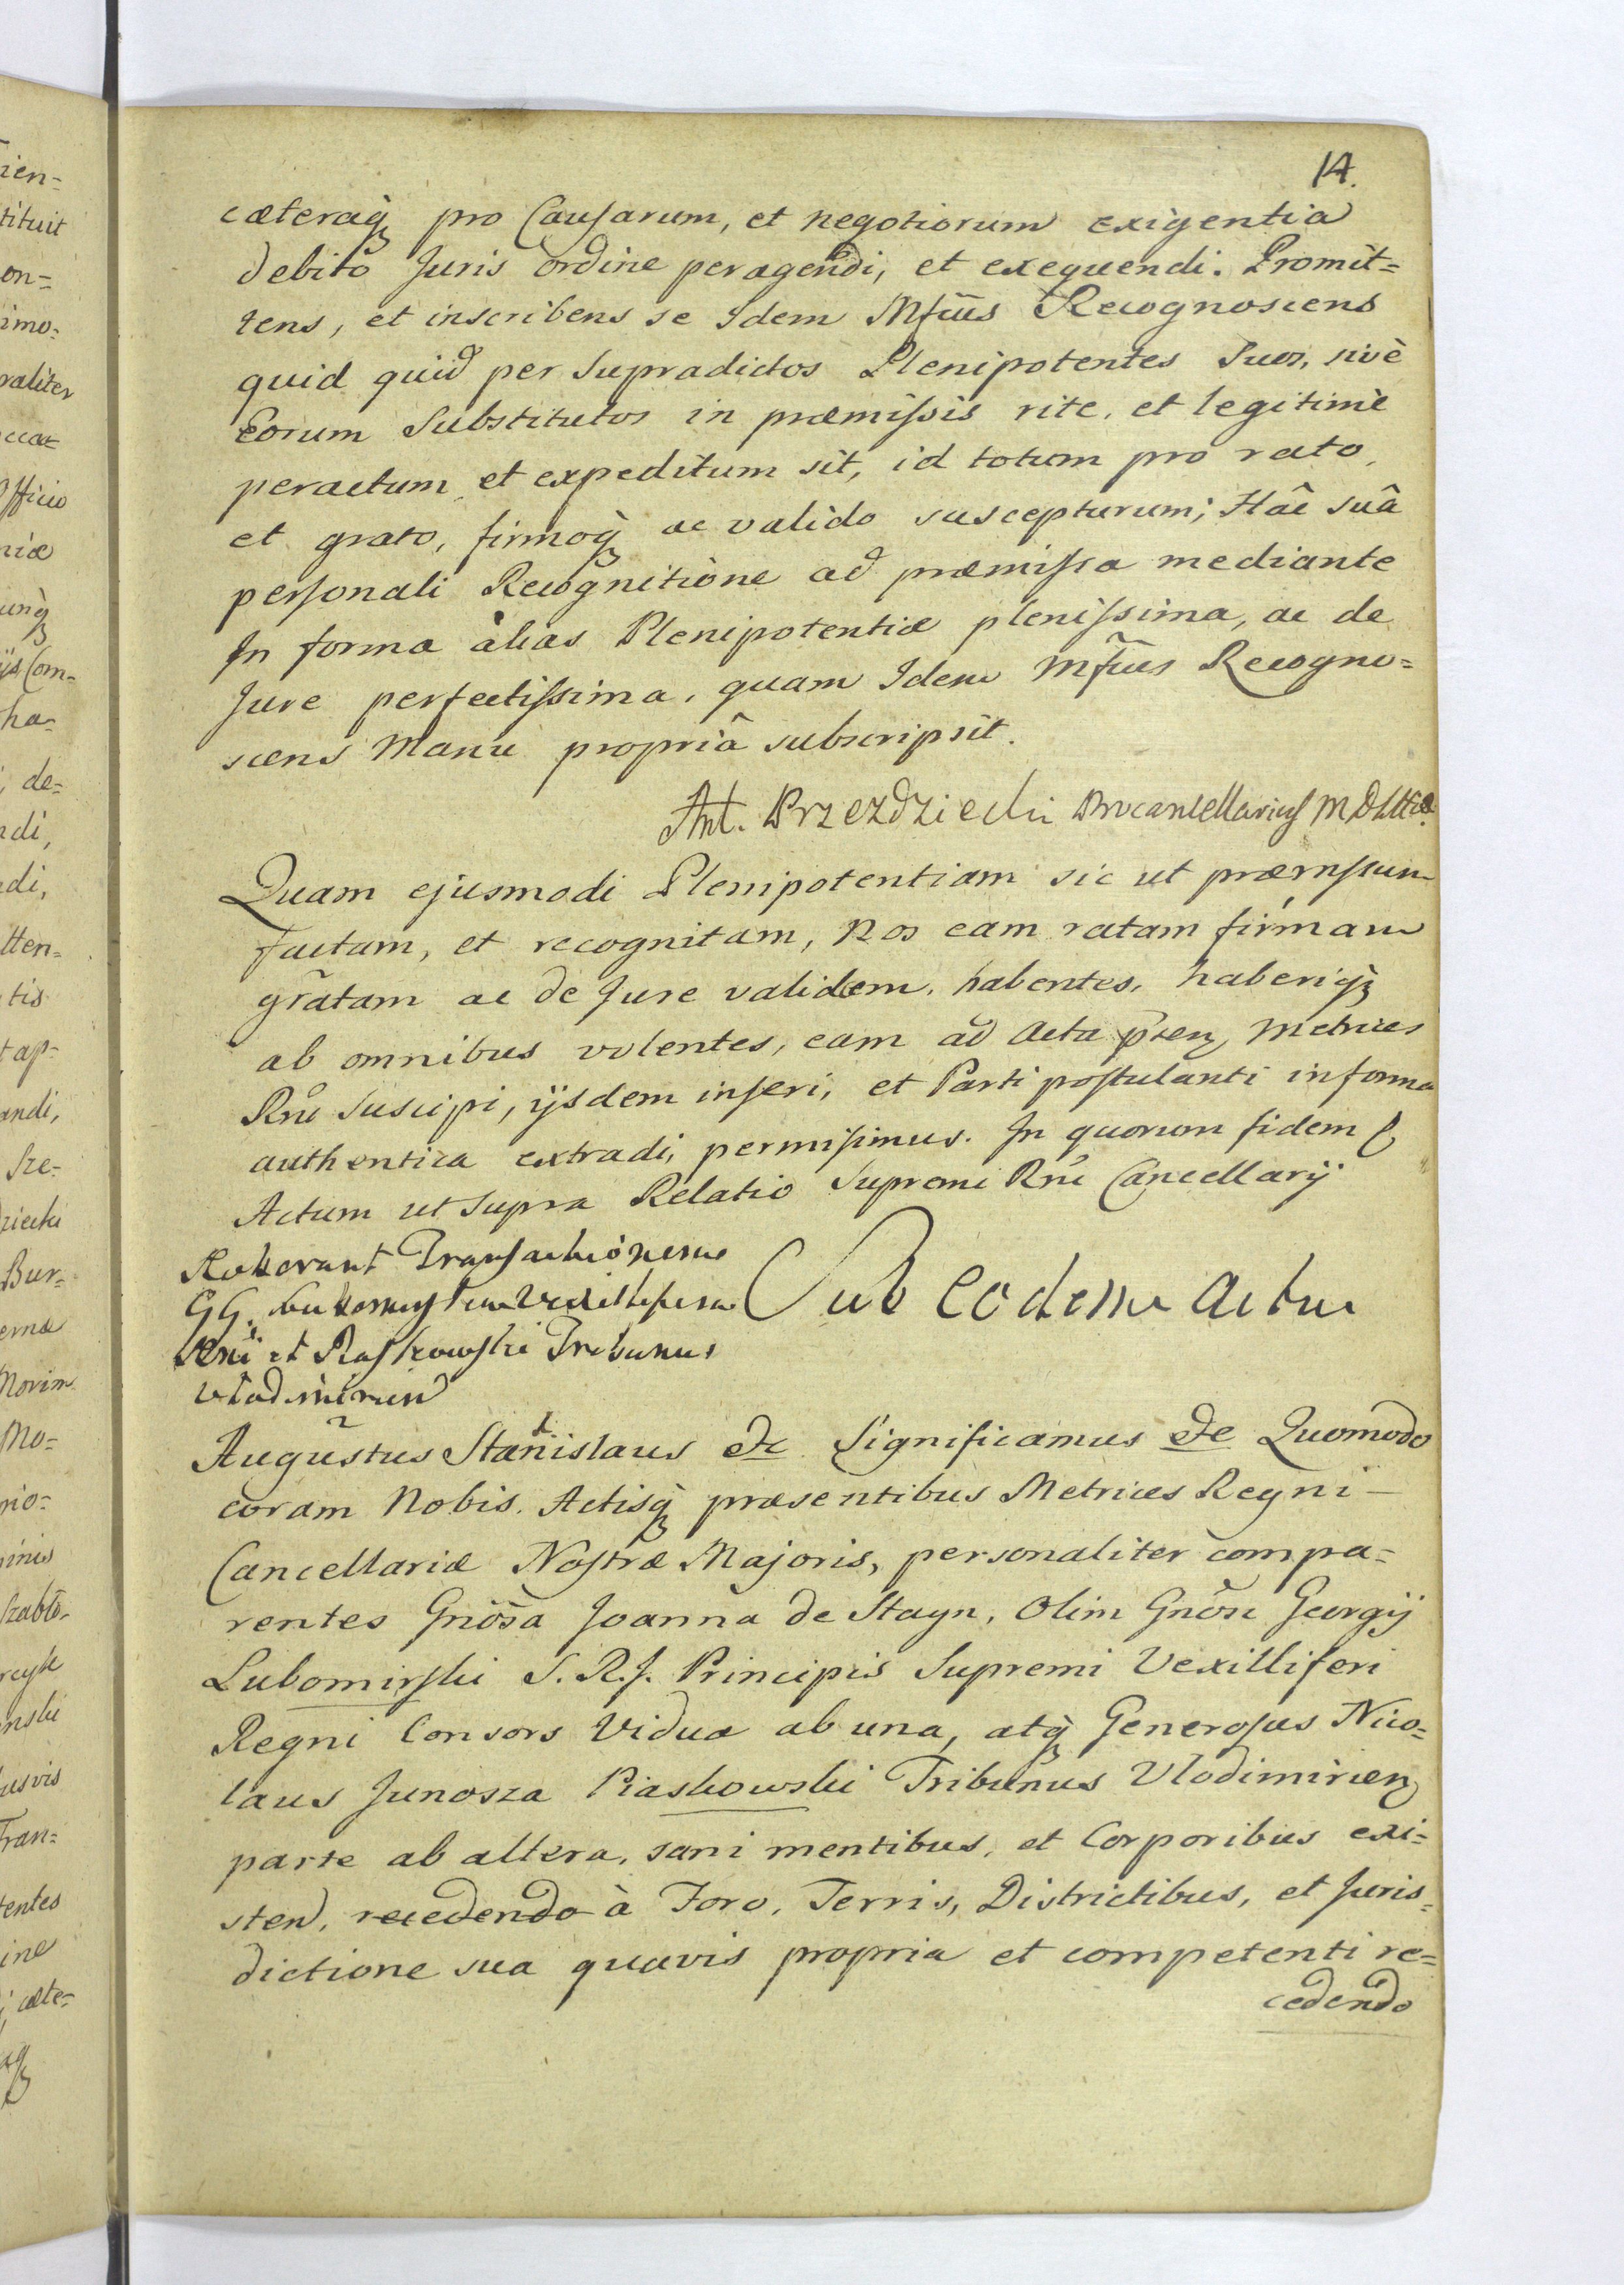 14.
cæteraq; pro Causarum, et negotiorum exigentia
debito Juris ordine peragendi, et exequendi. Promit=
tens, et inscribens se Idem Mfcus Recognoscens
quid quid per Supradictos Plenipotentes Suos, sivè
Eorum Substitutos in præmissis rite, et legitimè
peractum et expeditum sit, id totum pro rato,
et grato, firmoq; ac valido suscepturum; Hâc suâ
personali Recognitione ad præmissa mediante
In forma alias Plenipotentiæ plenissima, ac de
Jure perfectissima, quam Idem Mfcus Recogno=
scens Manu propriâ subscripsit.
Ant. Przezdziecki Procancellarius M D Litt.
Quam ejusmodi Plenipotentiam sic ut præmissum
factam, et recognitam, Nos eam ratam firmam
gratam ac de Jure validam, habentes, haberiq;
ab omnibus volentes, eam ad Acta præsen; Metrices
Rni Suscipi, ijsdem inseri, et Parti postulanti in forma
authentica extradi, permisimus. In quorum fidem
Actum ut supra Relatio Supremi Rni Cancellarij
Roborant Transactionem
GG. Lubomirska Vexillifera
Rni et Piaskowski Tribunus
Vlodimirien
Sub eodem actu
Augustus Stanislaus etc Significamus etc Quomodo
coram Nobis Actisq; præsentibus Metrices Regni –
Cancellariæ Nostræ Majoris, personaliter compa=
rentes Gnosa Joanna de Stayn, Olim Gnosi Georgij
Lubomirski S. R. J. Principis Supremi Vexilliferi
Regni Consors Vidua ab una, atq; Generosus Nico=
laus Junosza Piaskowski Tribunus Vlodimirien;
parte ab altera, sani mentibus, et Corporibus exi=
sten, recedendo à Foro, Terris, Districtibus, et Juris=
dictione sua quavis propria et competenti re=
cedendo